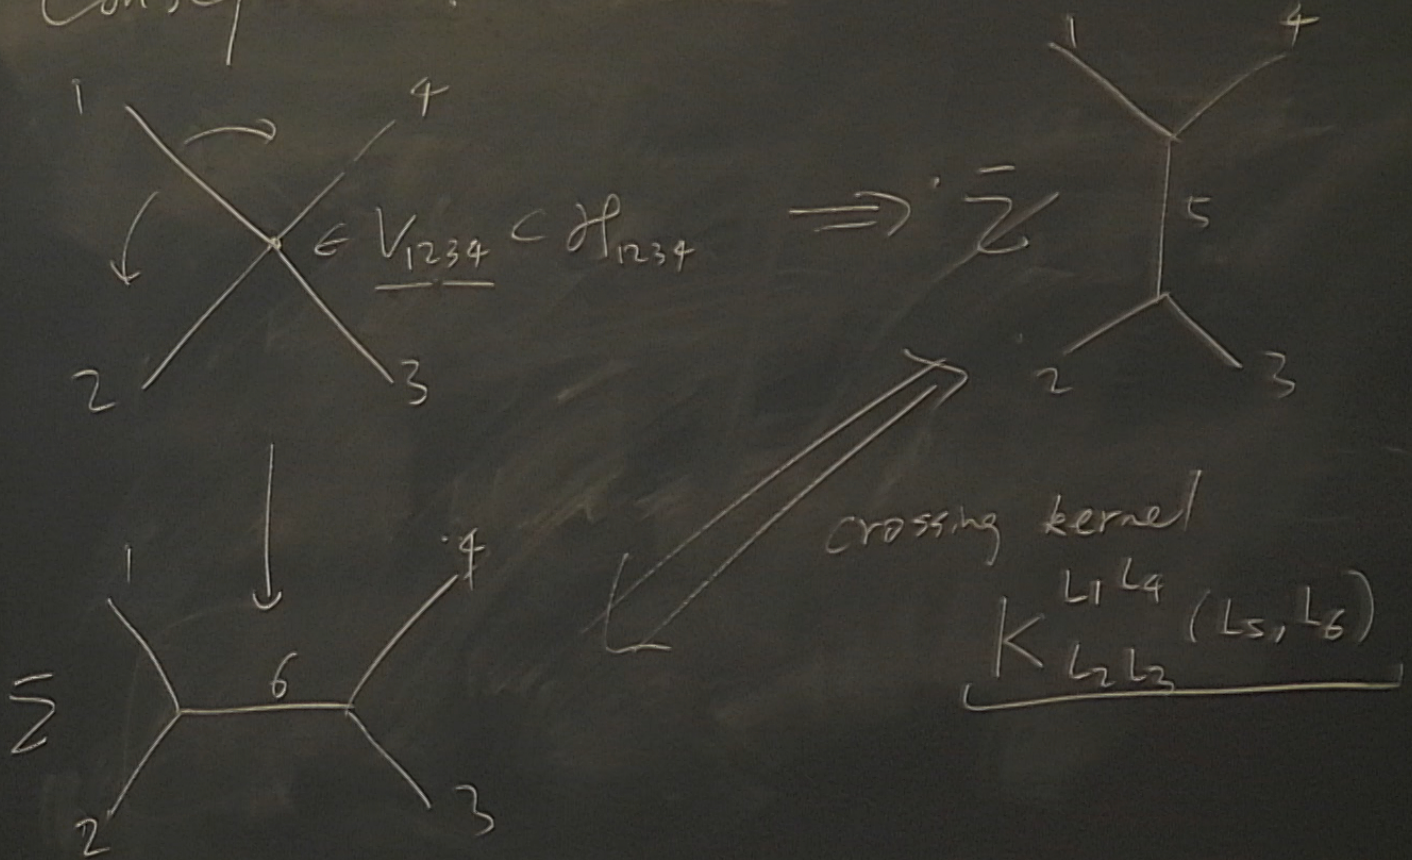 1 4
∈ V₁₂₃₄ ⊂ ℋ₁₂₃₄
2 3
⇒ Σ
1 4
5
2 3
1 4
Σ 6
2 3
crossing kernel
K^{L₁ L₄}_{L₂ L₃} (L₅, L₆)